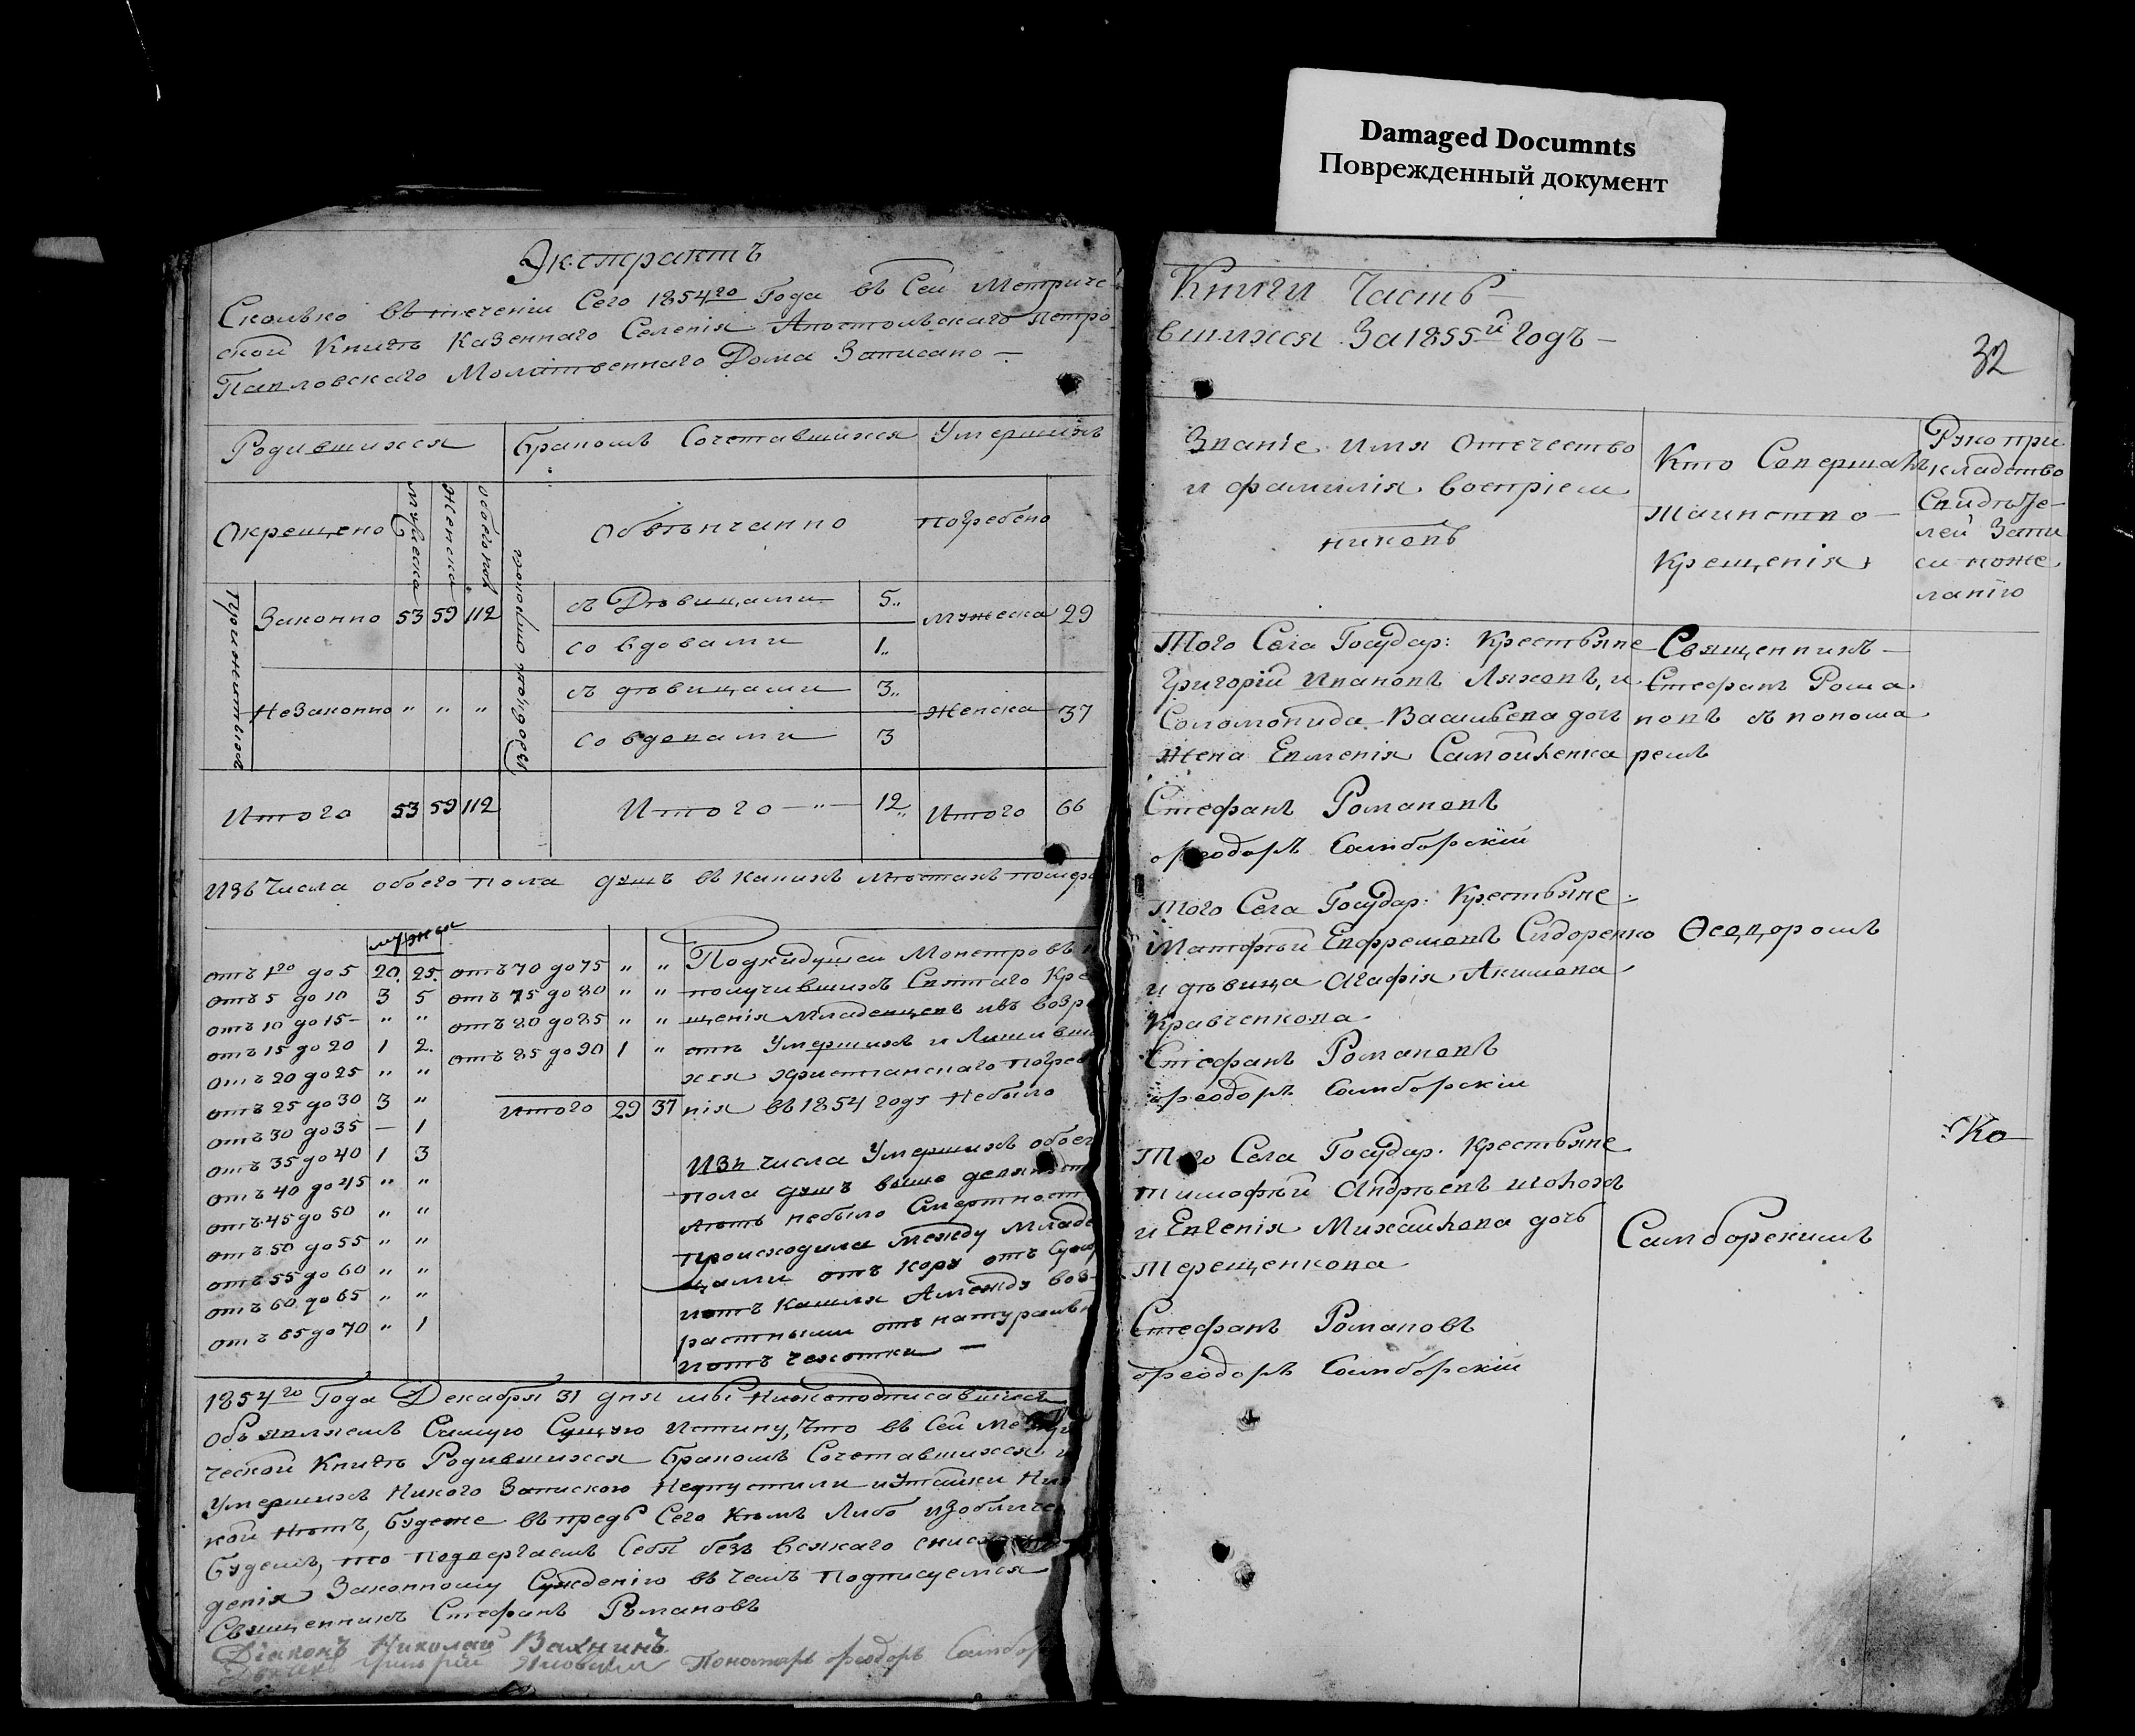 Damaged Documnts
Поврежденный документ
Экстрактъ
Сколько въ теченіи Сего 1854го Года въ Сей Метриче
ской Книгѣ Казеннаго Селенія Апостольскаго Петро
Павловскаго Молитвеннаго Дома Записано —
Родившихся
Бракомъ Сочетавшихся
Умершихъ
Окрещено
Мужеска
Женска
обоего
Обвѣнчанно
погребено
Законно 53 59 112
съ Дѣвицами 5
Мужеска 29
со вдовами 1
Незаконно " " "
съ дѣвицами 3
Женска 37
со вдовами 3
Итого 53 59 112
Итого — " — 12
Итого 66
Изъ Числа обоего пола душъ въ какихъ лѣтахъ померло
муж жен
отъ 1го до 5 20 25
отъ 5 до 10 3 5
отъ 10 до 15 — " "
отъ 15 до 20 1 2
отъ 20 до 25 " "
отъ 25 до 30 3 "
отъ 30 до 35 — 1
отъ 35 до 40 1 3
отъ 40 до 45 " "
отъ 45 до 50 " "
отъ 50 до 55 " "
отъ 55 до 60 " "
отъ 60 до 65 " "
отъ 65 до 70 " 1
отъ 70 до 75 " "
отъ 75 до 80 " "
отъ 80 до 85 " "
отъ 85 до 90 1 "
Итого 29 37
Подкидушей Монстровъ
получившихъ Святаго Кре
щенія Младенцевъ изъ возр
Умершихъ и Лишивши
хся христіанскаго погреб
нія въ 1854 году Небыло
Изъ числа Умершихъ обоег
пола душъ выше девяност
лѣтъ небыло Смертност
происходила Между Младе
цами отъ кору отъ
Кашля Амежду воз-
растными отъ натуральн
чехотки —
1854го Года Декабря 31 дня мы Нижеподписавшіеся
Объявляемъ Самую Сущую Истину, Что въ Сей Ме
ческой Книгѣ Родившихся Бракомъ Сочетавшихся и
Умершихъ Никого Запискою Непустили и Утайки Ни
кой Нѣтъ, Будеже въпредь Сего Кѣмъ Либо изобличе
Будемъ, то подвергаемъ Себя безъ Всякаго снисхож
денія Законному Сужденію въ Чемъ Подписуемся
Священникъ Стефанъ Романовъ
Діаконъ Николай Вахнинъ
Григорій Пономарь Феодоръ Самбор
Книги Часть —
вшихся За 1855й Годъ —
32
Званіе имя Отечество
и фамилія воспріем
никовъ
Кто Совершалъ
таинство —
Крещенія
Рукопри
кладство
Свидѣте-
лей Запи
си поже
ланію
Того Села Государ: Крестьяне
Григорій Ивановъ Ляховъ, и
Соломонида Васильева дочь
Жена Евменія Самойленка
Священникъ —
Стефанъ Рома
новъ съ понома
ремъ
Стефанъ Романовъ
Феодоръ Самборскій
Того Села Государ: Крестьяне
Матфѣй Евфремовъ Сидоренко
и дѣвица Агафія Акимова
Кравченкова
Ѳеодоромъ
Стефанъ Романовъ
Феодоръ Самборскій
Того Села Государ: Крестьяне
тимофѣй Андрѣевъ
и Евгенія Михайлова дочь
Терещенкова
Самборскимъ
Ко
Стефанъ Романовъ
Феодоръ Самборскій